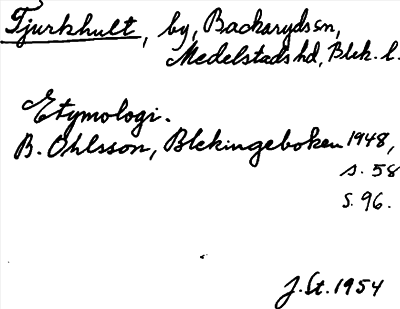 Tjurkhult, by, Backarydssn,
Medelstadshd, Blek. l.
Etymologi.
B. Ohlsson, Blekingeboken 1948,
s. 58
s. 96.
J. St. 1954